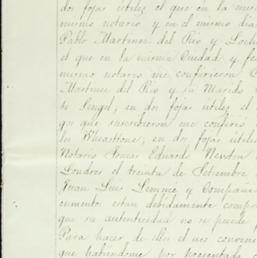 dos fojas útiles el que en la mis
mismo notario y en el mismo día
Pablo Martinez del Rio y
el que en la misma Ciudad y fe
mismo notario me confirieron
Martinez del Rio y su Marido
te Angel; en dos fojas útiles el
go que suscribieron me confirió
les Wheattone; en dos fojas útiles
Notario Eduardo Newton
Londres el treinta de Setiembre
Juan Luis Lemmé y Compañia
cumentos estan debidamente comp
que su autenticidad no se puede
Para hacer de ellos el uso conven
que habiéndome por presentado